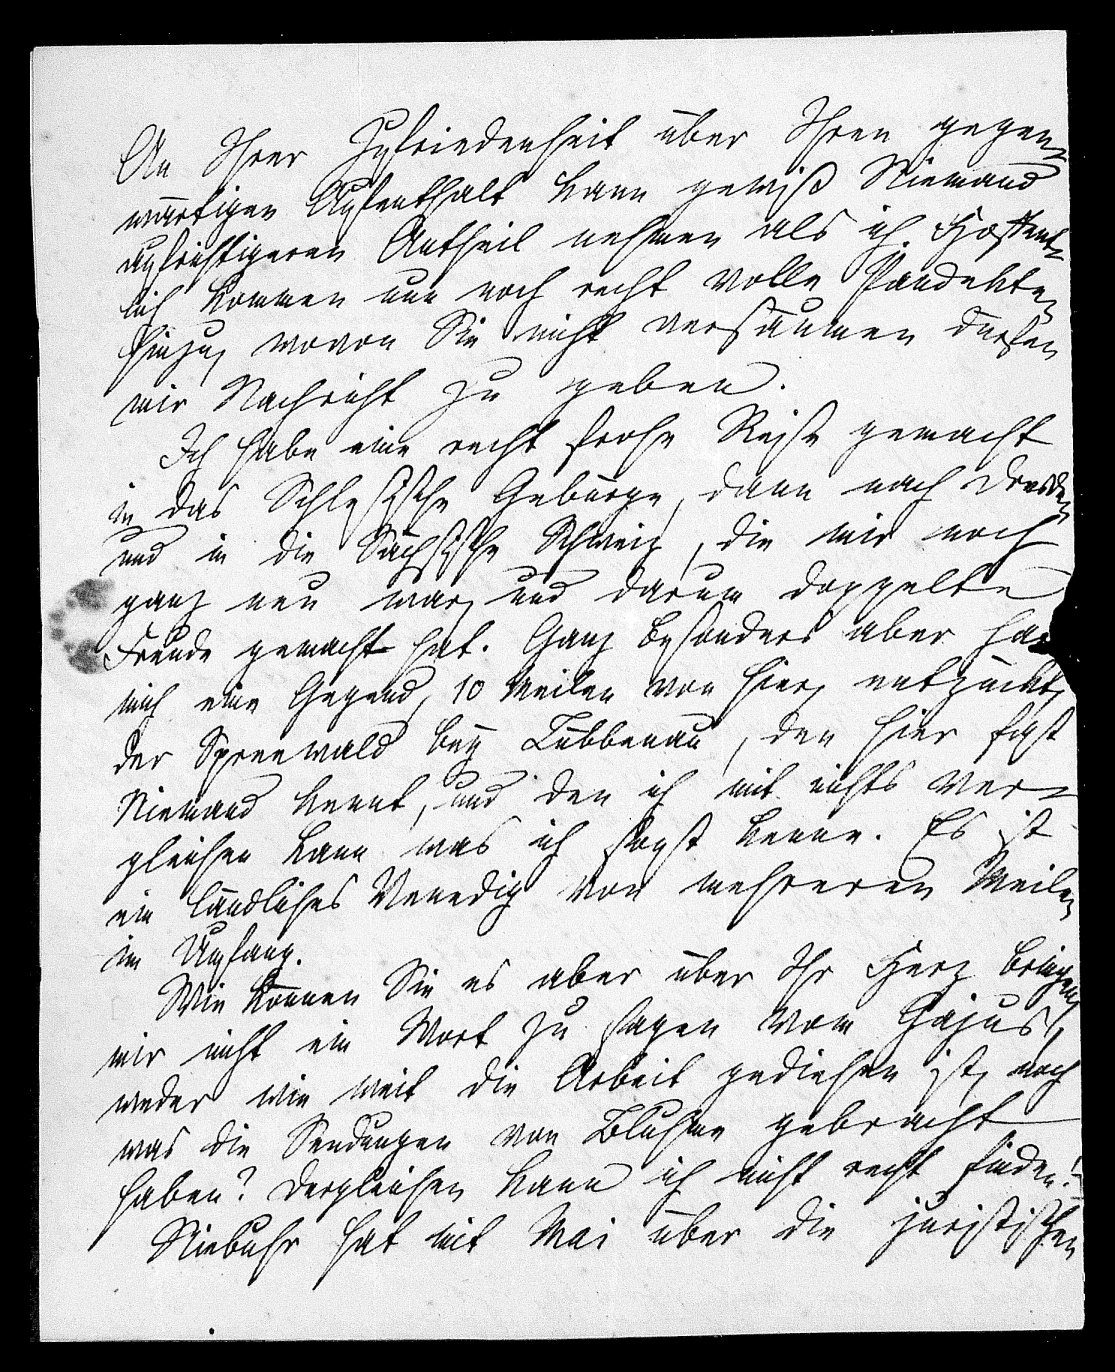 An Ihrer Zufriedenheit über Ihren gegen-
wärtigen Aufenthalt kann gewiß Niemand
aufrichtigeren Antheil nehmen als ich. Hoffent-
lich kommen nun noch recht volle Pandekten
hinzu, wovon Sie nicht versäumen dürfen
mir Nachricht zu geben.
Ich habe eine recht frohe Reise gemacht
in das Schlesische Gebürge, dann nach Dresden
und in die Sächsische Schweiz, die mir noch
ganz neu war, und darum doppelte
Freude gemacht hat. Ganz besonders aber hat
mich eine Gegend, 10 Meilen von hier, entzückt,
der Spreewald bey Lübbenau, den hier fast
Niemand kennt, und den ich mit nichts ver-
gleichen kann was ich sonst kenne. Es ist
ein ländliches Venedig von mehreren Meilen
im Umfang.
Wie können Sie es aber über Ihr Herz bringen,
mir nicht ein Wort zu sagen vom Gajus,
weder wie weit die Arbeit gediehen ist, noch
was die Sendungen von Bluhme gebracht
haben? Dergleichen kann ich nicht recht finden!
Niebuhr hat mit Mai über die juristischen